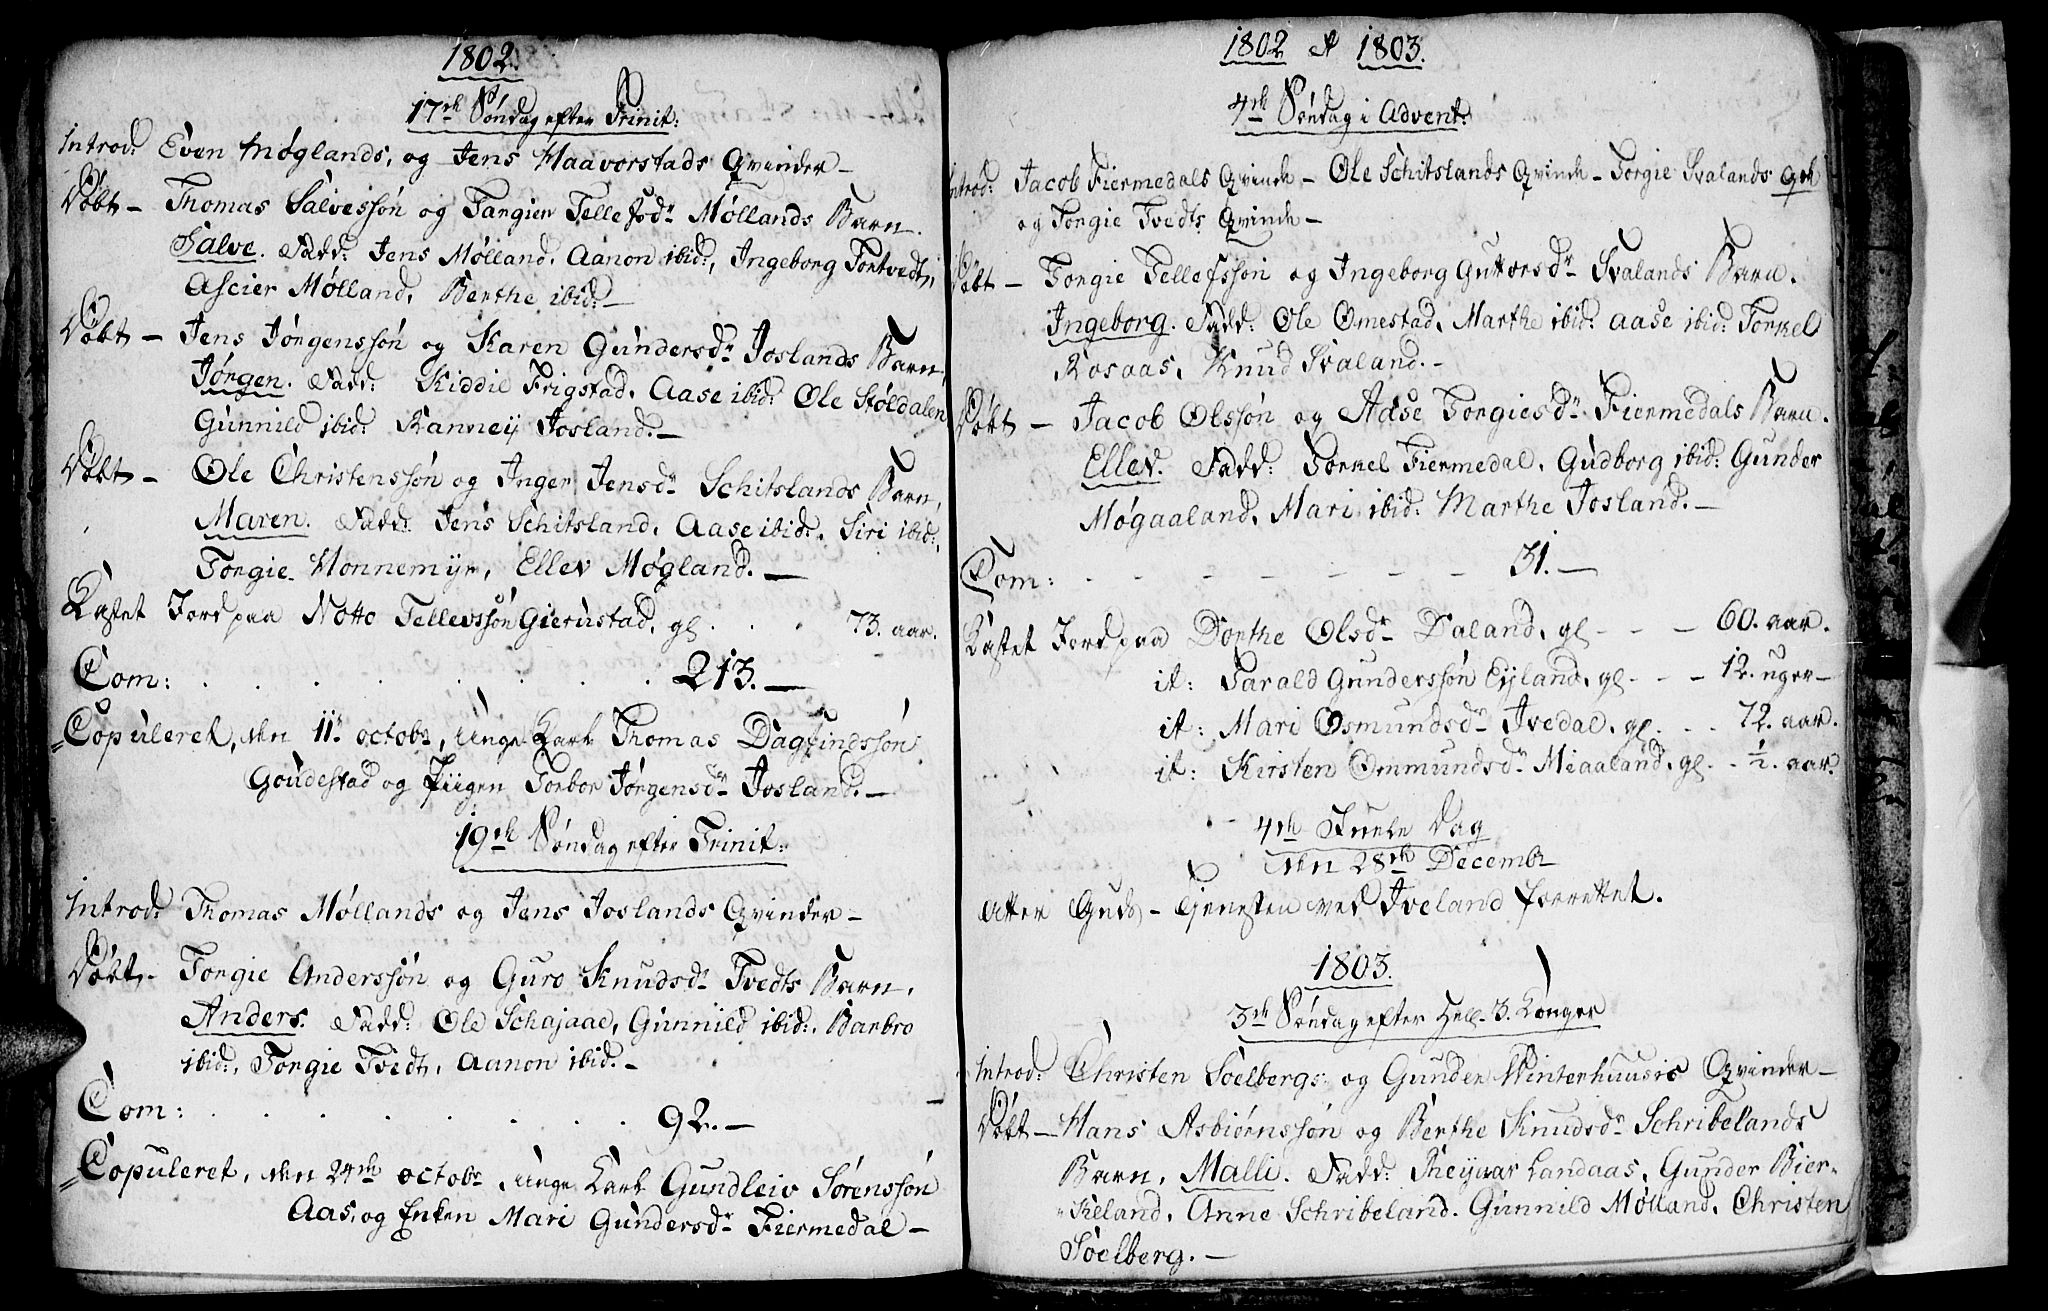 1802.
17de Søndag efter Trinit:
Introd: Even Møglands, og Jens Haavorstads Qvinder –
Døbt – Thomas Salvessøn og Tangien Tellefsdr Møllands Barn.
Salve. Fadd: Jens Mølland, Aanon ibid:, Ingeborg Tortvedt,
Ascier Mølland, Berthe ibid: –
Døbt – Jens Jørgenssøn og Karen Gundersdr Joslands Barn,
Jørgen. Fadd: Kiddil Frigstad, Aase ibid: Ole Støldalen
Gunnild ibid: Ranney Josland. –
Døbt – Ole Christenssøn og Inger Jensdr Schitslands Barn,
Maren. Fadd: Jens Schitsland, Aase ibid:, Siri ibid:,
Torgie Honnemyr, Ellev Møgland. –
Kastet Jord paa Notto Tellevssøn Gierustad, gl . . . 73. aar.
Com: . . . . . . . . 213. –
Copuleret, den 11te octobr, unge Karl Thomas Dagfindssøn
Goudestad og Piigen Torbor Jørgensdr Josland. –
19de Søndag efter Trinit:
Introd: Thomas Møllands og Jens Joslands Qvinder –
Døbt – Torgie Anderssøn og Guro Knudsdr Tvedts Barn,
Anders. Fadd: Ole Schajaae, Gunnild ibid:, Barbro
ibid:, Torgie Tvedt, Aanon ibid. –
Com: . . . . . . . . 92. –
Copuleret, den 24de octobr, unge Karl Gundleiv Sørenssøn
Aas, og Enken Mari Gundersdr Fiermedal –
1802 et 1803.
4de Søndag i Advent:
Introd: Jacob Fiermedals Qvinde – Ole Schitslands Qvinde – Torgie Svalands Qde
og Torgie Tvedts Qvinde –
Døbt – Torgie Tellefssøn og Ingeborg Guttorsdr Svalands Barn.
Ingeborg. Fadd: Ole Omestad, Marthe ibid: Aase ibid: Torkel
Rosaas, Knud Svaland. –
Døbt – Jacob Olssøn og Aase Torgiesdr Fiermedals Barn.
Ellev. Fadd: Torkel Fiermedal, Gudborg ibid: Gunder
Møgaaland, Mari ibid: Marthe Josland. –
Com: – – – – – – – 31. –
Kastet Jord paa Dorthe Olsdr Daland, gl – – – 60. aar.
it: Tarald Gunderssøn Eyland, gl – – – 12. uger –
it: Mari Osmundsdr Ivedal, gl . . . 72. aar.
it: Kirsten Ommundsdr Miaaland, gl . . ½. aar.
4de Juele Dag
den 28de Decembr
atter Guds-Tjenesten ved Iveland forrettet.
1803.
3de Søndag efter Hell. 3. Konger
Introd: Christen Soelbergs og Gunder Winterhuusis Qvinder –
Døbt – Hans Asbiørnssøn og Berthe Knudsdr Schribelands
Barn, Malli. Fadd: Reyvar Landaas, Gunder Bier-
keland, Anne Schribeland. Gunnild Mølland, Christen
Soelberg. –